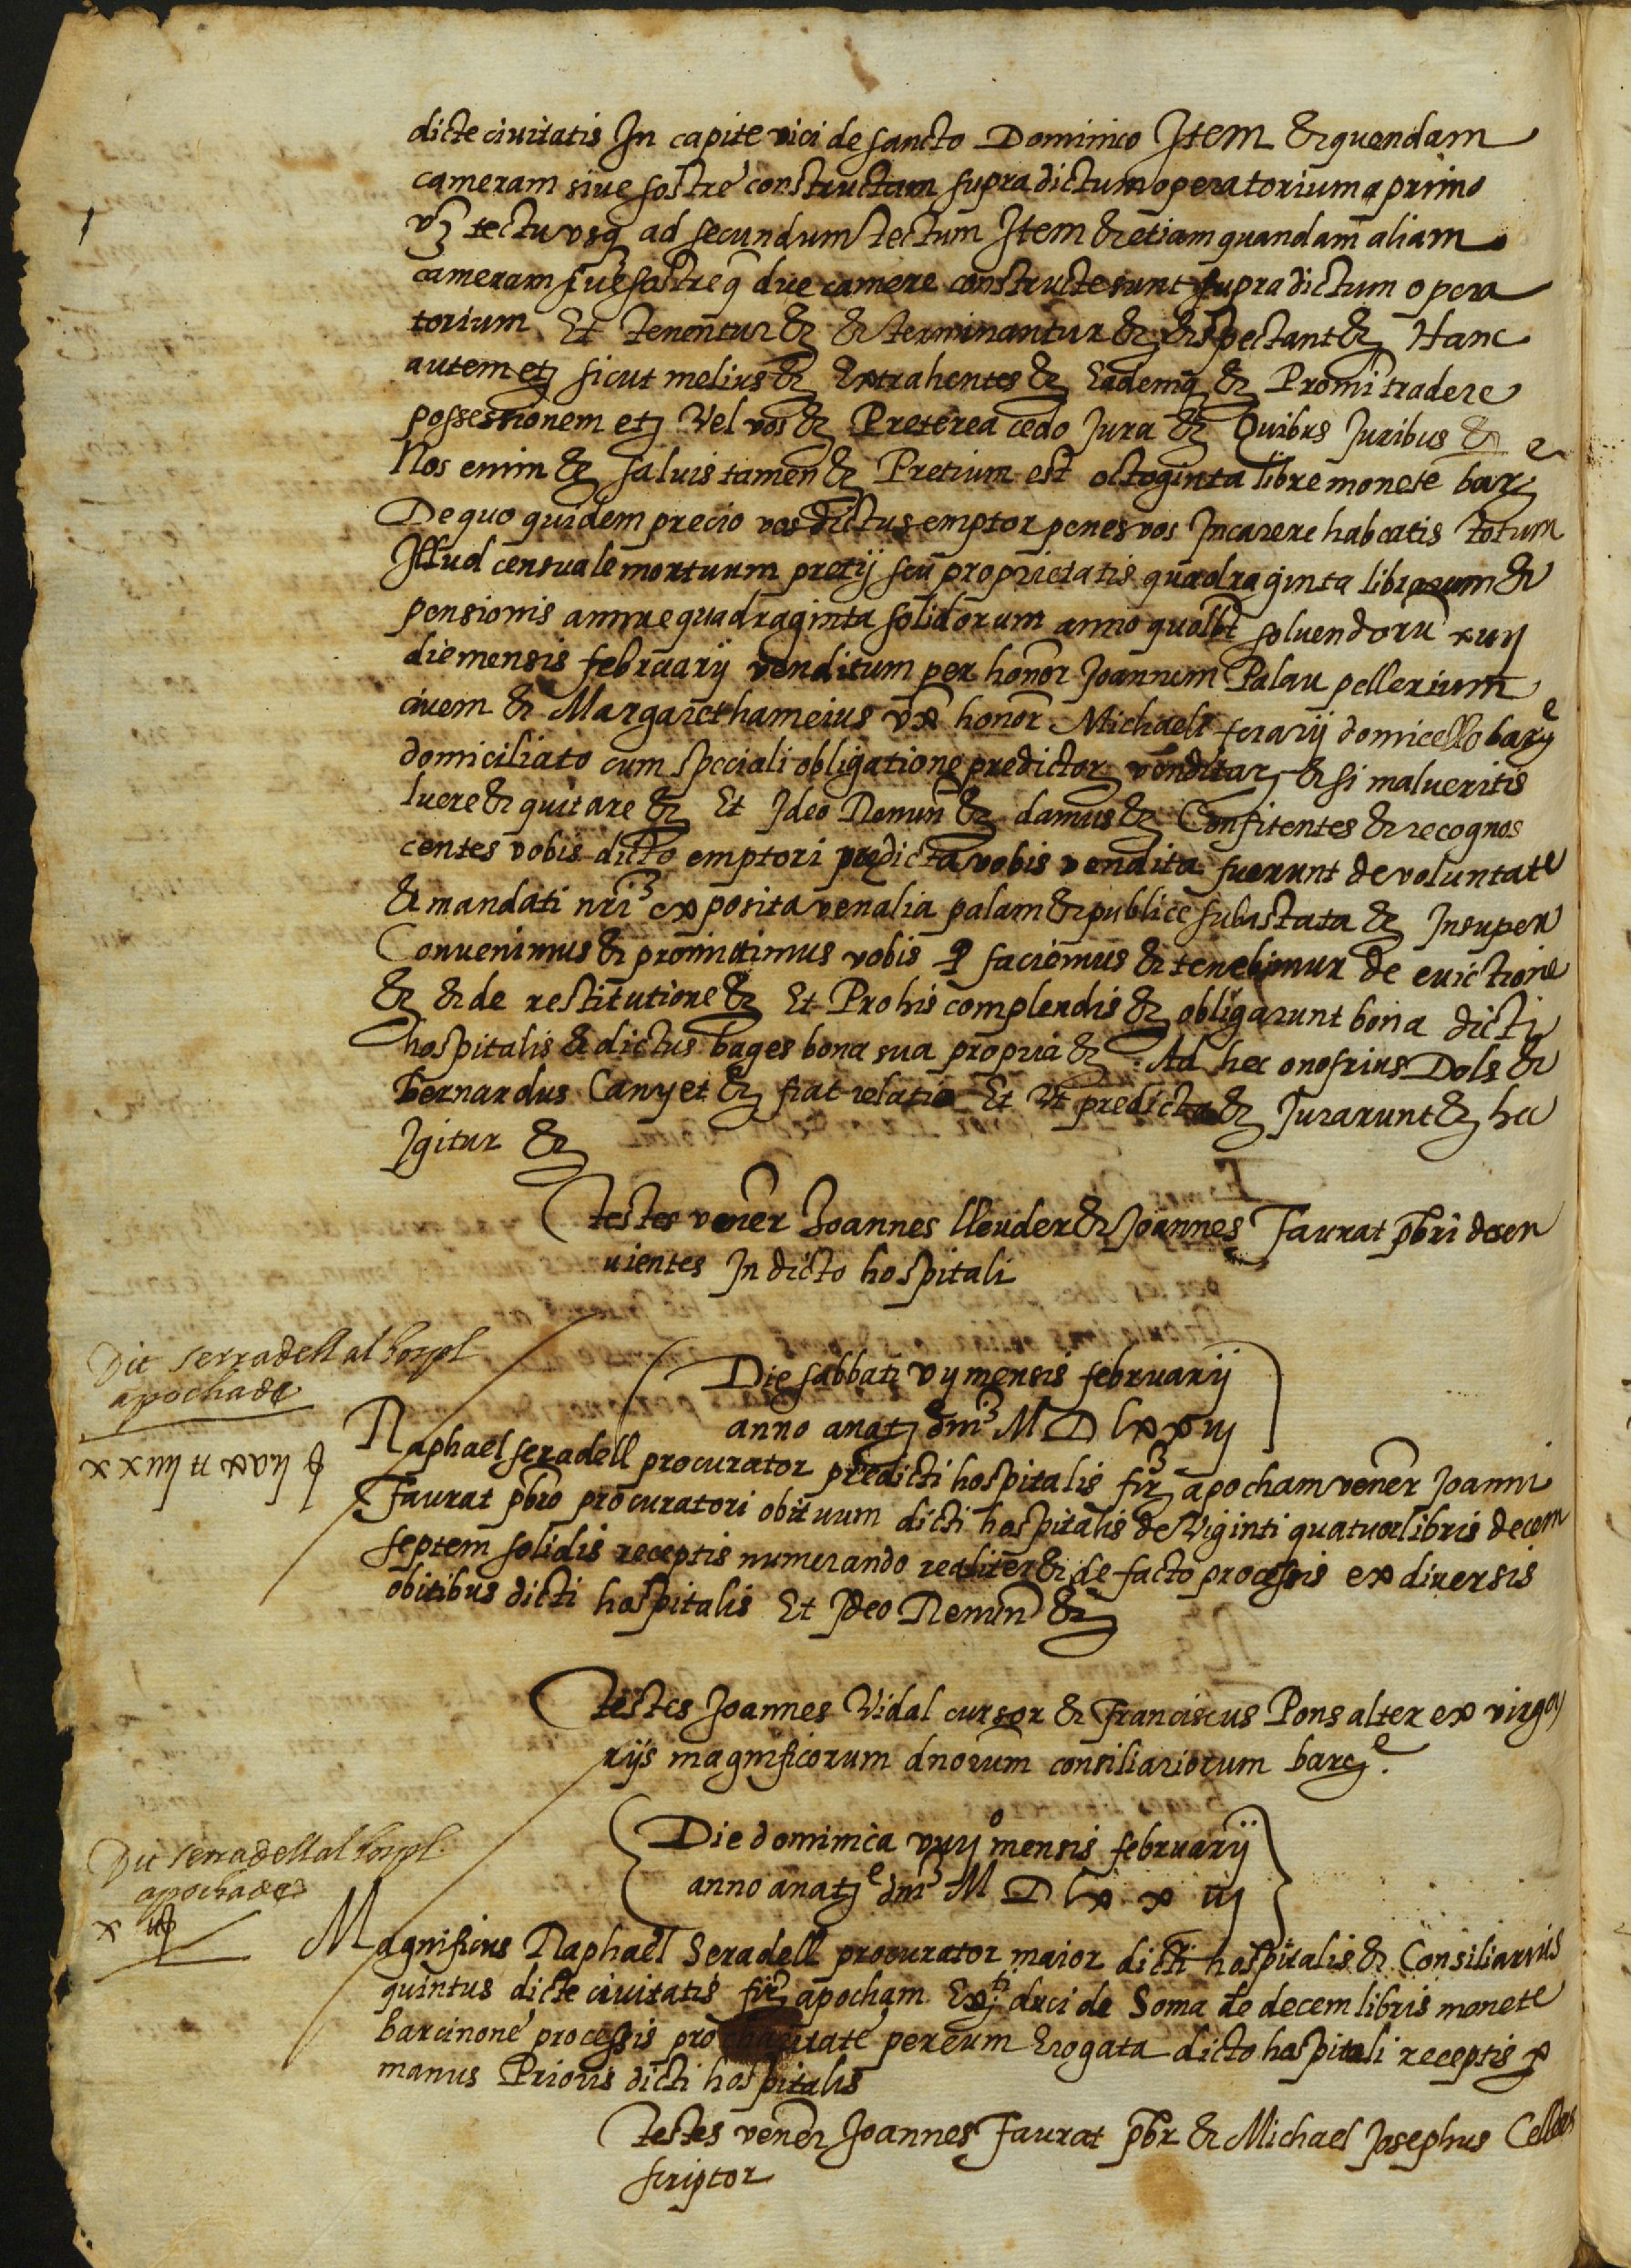 dicte civitatis In capite vici de sancto Dominico Item & quendam
cameram sive sostre constructam supra dictum operatorium a primo
vz tectu usq ad secundum tectum Item & etiam quandam aliam
cameram sive sostre q due camere constructe sunt supra dictum opera
torium Et tenentur &c & terminantur &c & spectant &c Hanc
autem etz sicut melius &c Extrahentes &c Eademq &c Promi tradere
possessionem etz Vel vos &c Preterea cedo Jura &c Quibus Juribus &c
Nos enim &c salvis tamen &c Pretium est octoginta libre monete barz e
De quo quidem precio vos dictus emptor penes vos Incarere habeatis totum
Illud censuale mortuum pretij seu proprietatis quadraginta librarum &
pensionis annue quadraginta solidorum anno quolbt solvendoru xviij
die mensis februarij venditum per honor Joannem Palau pellerium
civem & Margaretham eius vx honor Michaeli ferarij domicello barz e
domiciliato cum speciali obligatione predictor venditar & si malueritis
luere & quitare &c Et Ideo Renun &c damus &c Confitentes & recognos
centes vobis dicto emptori predicta vobis vendita fuerunt de voluntate
& mandati nri exposita venalia palam & publice subastata &c Insuper
Convenimus & promittimus vobis q faciemus & tenebimur de evictione
&c & de restitutione &c Et Pro his complendis &c obligarunt bona dicti
hospitalis & dictus bages bona sua propria &c Ad hec onofrius Dols &
bernardus Canyet &c fiat relatio Et Ut predicta &c Jurarunt &c hec
Igitur &c
testes vener Joannes lleuder & Joannes Faurat pbri deser
vientes In dicto hospitali
Dit serradell al hospl
apocha de
xxiiij tt xvij ş
Die sabbati vij mensis februarij
anno anatz dmi M D lxxiij
Raphael seradell procurator predicti hospitalis firz apocham vener Joanni
Faurat pbro procuratori obituum dicti hospitalis de Viginti quatuor libris decem
septem solidis receptis numerando realiter & de facto processis ex diversis
obitibus dicti hospitalis Et Ideo Renun &c
testes Joannes Vidal cursor & Franciscus Pons alter ex virga
rijs magnificorum dnorum consiliariorum barcz e.
Dit serradell al hospl
apocha de
x tt
Die dominica viij o mensis februarij
anno anatz e dmi M D lx x iij
Magnificus Raphael Seradell procurator maior dicti hospitalis & Consiliarius
quintus dicte civitatis firz apocham Exti duci de Soma de decem libris monete
barcinone processis pro charitate per eum Erogata dicto hospitali receptis p
manus Prioris dicti hospitalis
testes vener Joannes Faurat pbr & Michael Josephus
scriptor